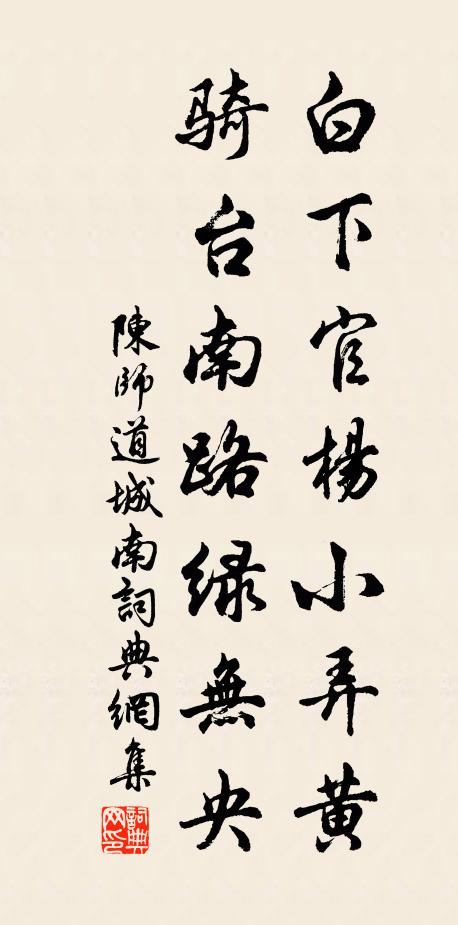 白下官楊小弄黄
騎台南路綠無央
陳師道城南詞典網集
詞典网印